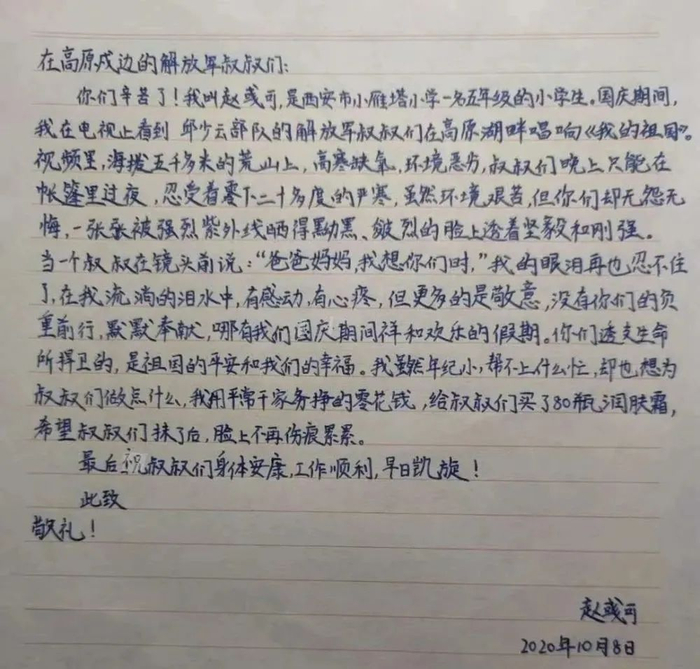 在高原戍边的解放军叔叔们:
你们辛苦了!我叫赵彧可,是西安市小雁塔小学一名五年级的小学生。国庆期间,
我在电视上看到 邱少云部队的解放军叔叔们在高原湖畔唱响《我的祖国》。
视频里,海拨五千多米的荒山上,高寒缺氧,环境恶劣,叔叔们晚上只能在
帐篷里过夜,忍受着零下二十多度的严寒,虽然环境艰苦,但你们却无怨无
悔,一张张被强烈紫外线晒得黝黑、皴裂的脸上透着坚毅和刚强。
当一个叔叔在镜头前说:“爸爸妈妈,我想你们时,”我的眼泪再也忍不住
了,在我流淌的泪水中,有感动,有心疼,但更多的是敬意,没有你们的负
重前行,默默奉献,哪有我们国庆期间祥和欢乐的假期。你们透支生命
所捍卫的,是祖国的平安和我们的幸福。我虽然年纪小,帮不上什么忙,却也想为
叔叔们做点什么,我用平常干家务挣的零花钱,给叔叔们买了80瓶润肤霜,
希望叔叔们抹了后,脸上不再伤痕累累。
最后祝叔叔们身体安康,工作顺利,早日凯旋!
此致
敬礼!
赵彧可
2020年10月8日